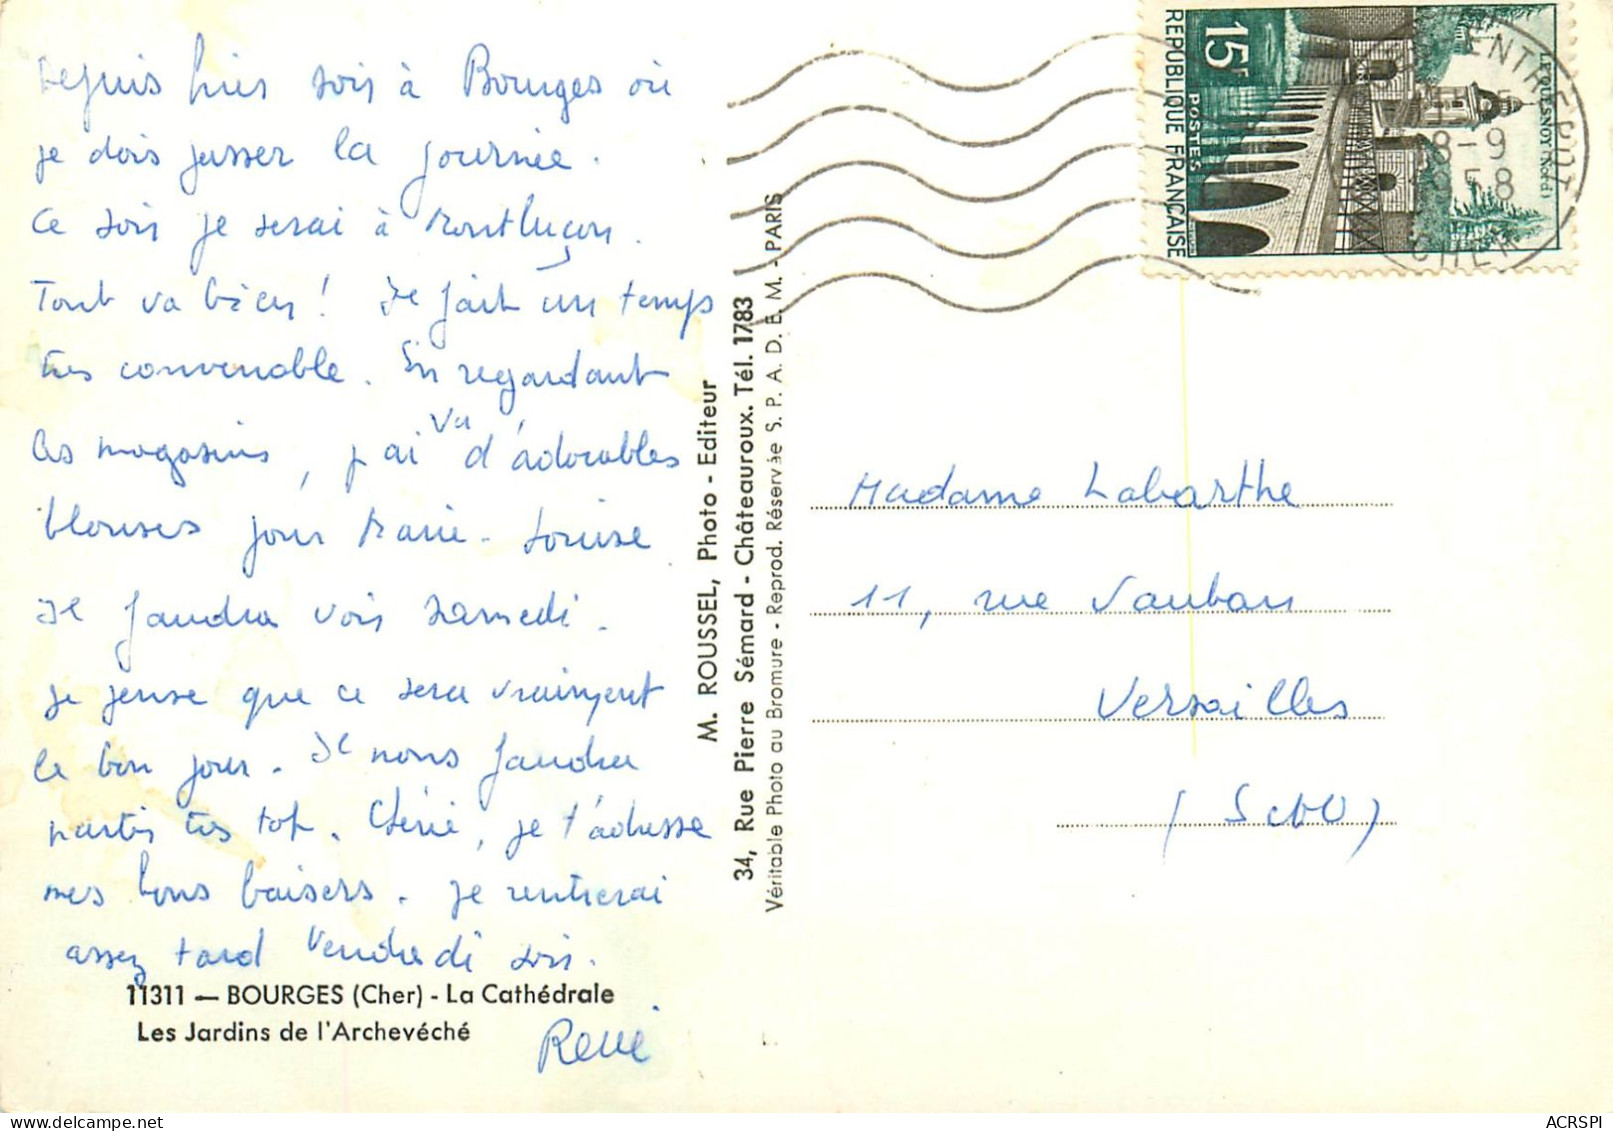 Depuis hier soir à Bourges où
je dois passer la journée.
Ce soir je serai à Montluçon.
Tout va bien ! Il fait un temps
très convenable. En regardant
les magasins, j'ai vu d'adorables
blouses pour Marie-Louise
Il faudra voir Samedi.
je pense que ce sera vraiment
le bon jour. Il nous faudra
partir très tot. Chérie, je t'adresse
mes bons baisers. Je rentrerai
assez tard Vendredi soir.
René
11311 — BOURGES (Cher) - La Cathédrale
Les Jardins de l'Archevéché
M. ROUSSEL, Photo - Editeur
34, Rue Pierre Sémard - Châteauroux. Tél. 1783
Véritable Photo au Bromure - Reprod. Réservée S. P. A. D. E. M. - PARIS
15F
POSTES
REPUBLIQUE FRANÇAISE
LE QUESNOY (Nord)
ENTREPOT
8-9
58
CHER
Madame Labarthe
11, rue Vauban
Versailles
(S et O)
ACRSPI